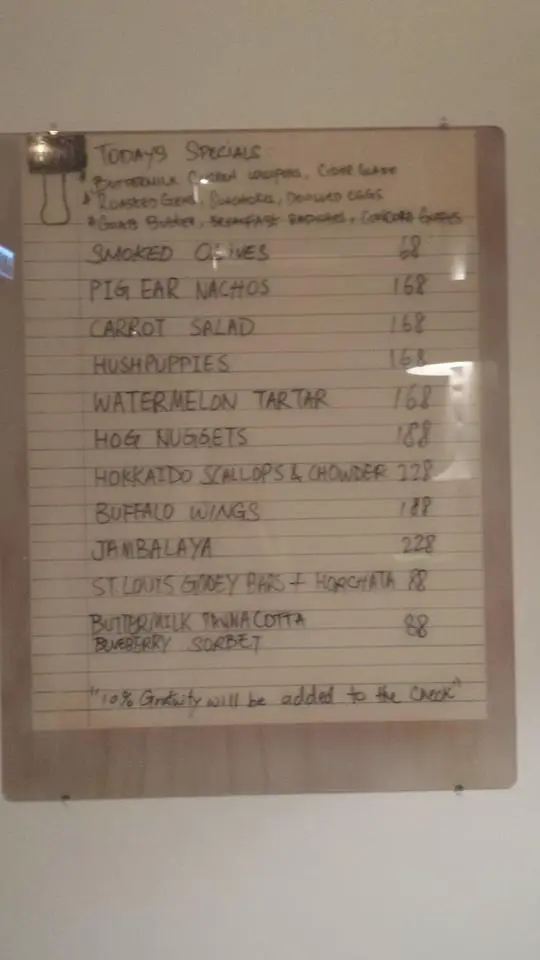 TODAYS SPECIALS
* BUTTERMILK CHICKEN LOLLIPOPS, CIDER GLAZE
* ROASTED GEM, DEVILED EGGS
* GOATS BUTTER, BREAKFAST RADISHES, CONCORD GRAPES
SMOKED OLIVES 68
PIG EAR NACHOS 168
CARROT SALAD 168
HUSHPUPPIES 168
WATERMELON TARTAR 168
HOG NUGGETS 188
HOKKAIDO SCALLOPS & CHOWDER 228
BUFFALO WINGS 188
JAMBALAYA 228
ST. LOUIS GOOEY BARS + HORCHATA 88
BUTTERMILK PANNACOTTA 88
BLUEBERRY SORBET
"10% Gratuity will be added to the check"